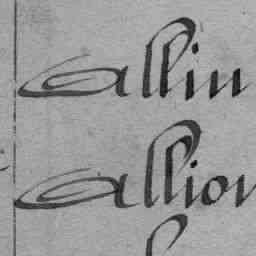 Allin
Allion